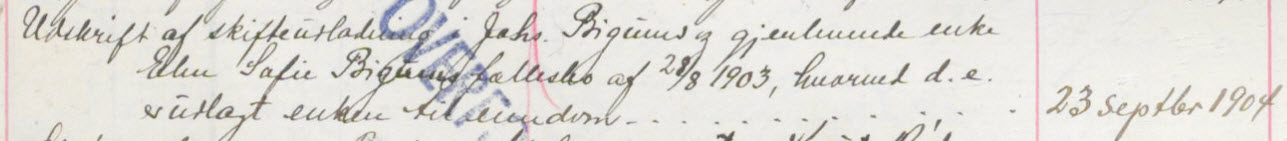 Udskrift af skifteudladning i Johs. Bigums og gjenlevende enke
Elen Sofie Bigums fællesbo af 28/8 1903, hvorved d. e.
er udlagt enken til eiendom 23 Septbr 1904